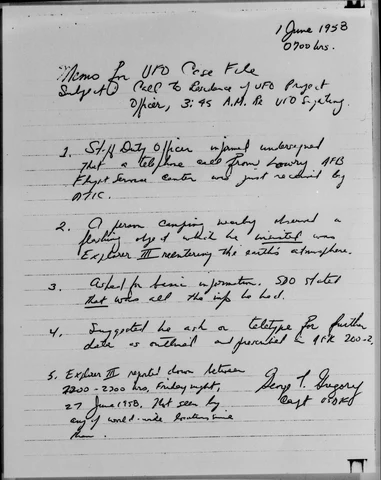 1 June 1958
0700 hrs.
Memo for UFO Case File
Subject: Call to Residence of UFO Project
Officer, 3:45 A.M. Re UFO Sighting.
1. Staff Duty Officer informed undersigned
that a telephone call from Lowry AFB
Flight Service Center was just received by
ATIC.
2. A person camping nearby observed a
flashing object which he insisted was
Explorer III reentering the earth's atmosphere.
3. Asked for basic information. SDO stated
that was all the info he had.
4. Suggested he ask or teletype for further
data as outlined and prescribed in AFR 200-2.
5. Explorer III reported down between
2200-2300 hrs, Friday night,
27 June 1958. Not seen by
any of world-wide locations since
then.
George T. Gregory
Capt USAF